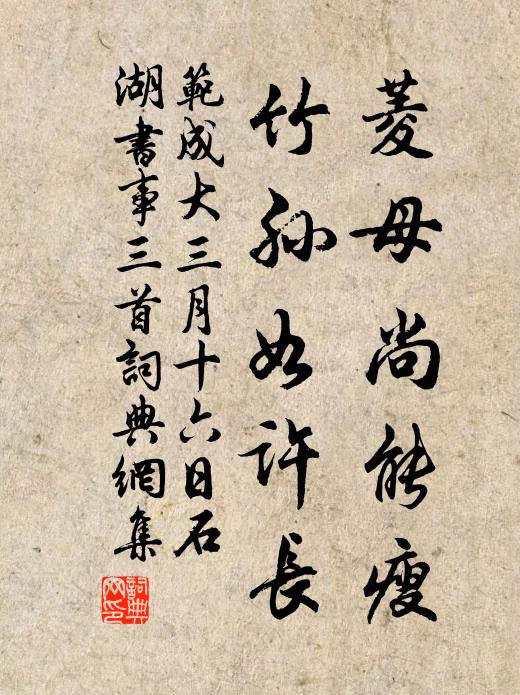 菱母尚能瘦
竹孫如許長
範成大三月十六日石
湖書事三首詞典網集
詞典網印